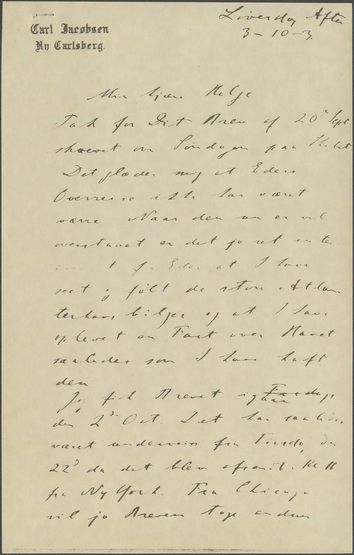 Carl Jacobsen
Ny Carlsberg.
Løverdag Aften
3-10-3.
Min kjære Helge
Tak for Dit Brev af 20' Sept
skrevet om Søndagen paa
Det glæder mig at Eders
Overreise ikke har været
værre Naar den nu er vel
overstaaet er det jo ret
for Eder at I have
set og følt de store Atlan
terhavsbølger og at I have
oplevet en Fart over Havet
saaledes som I have haft
den
Jeg fik Brevet igaar
den 2' Oct. Det har saaledes
været underveis fra Tirsdag den
22' da det blev afsendt. Kl 11
fra New York. Fra Chicago
vil jo Brevene tage endnu